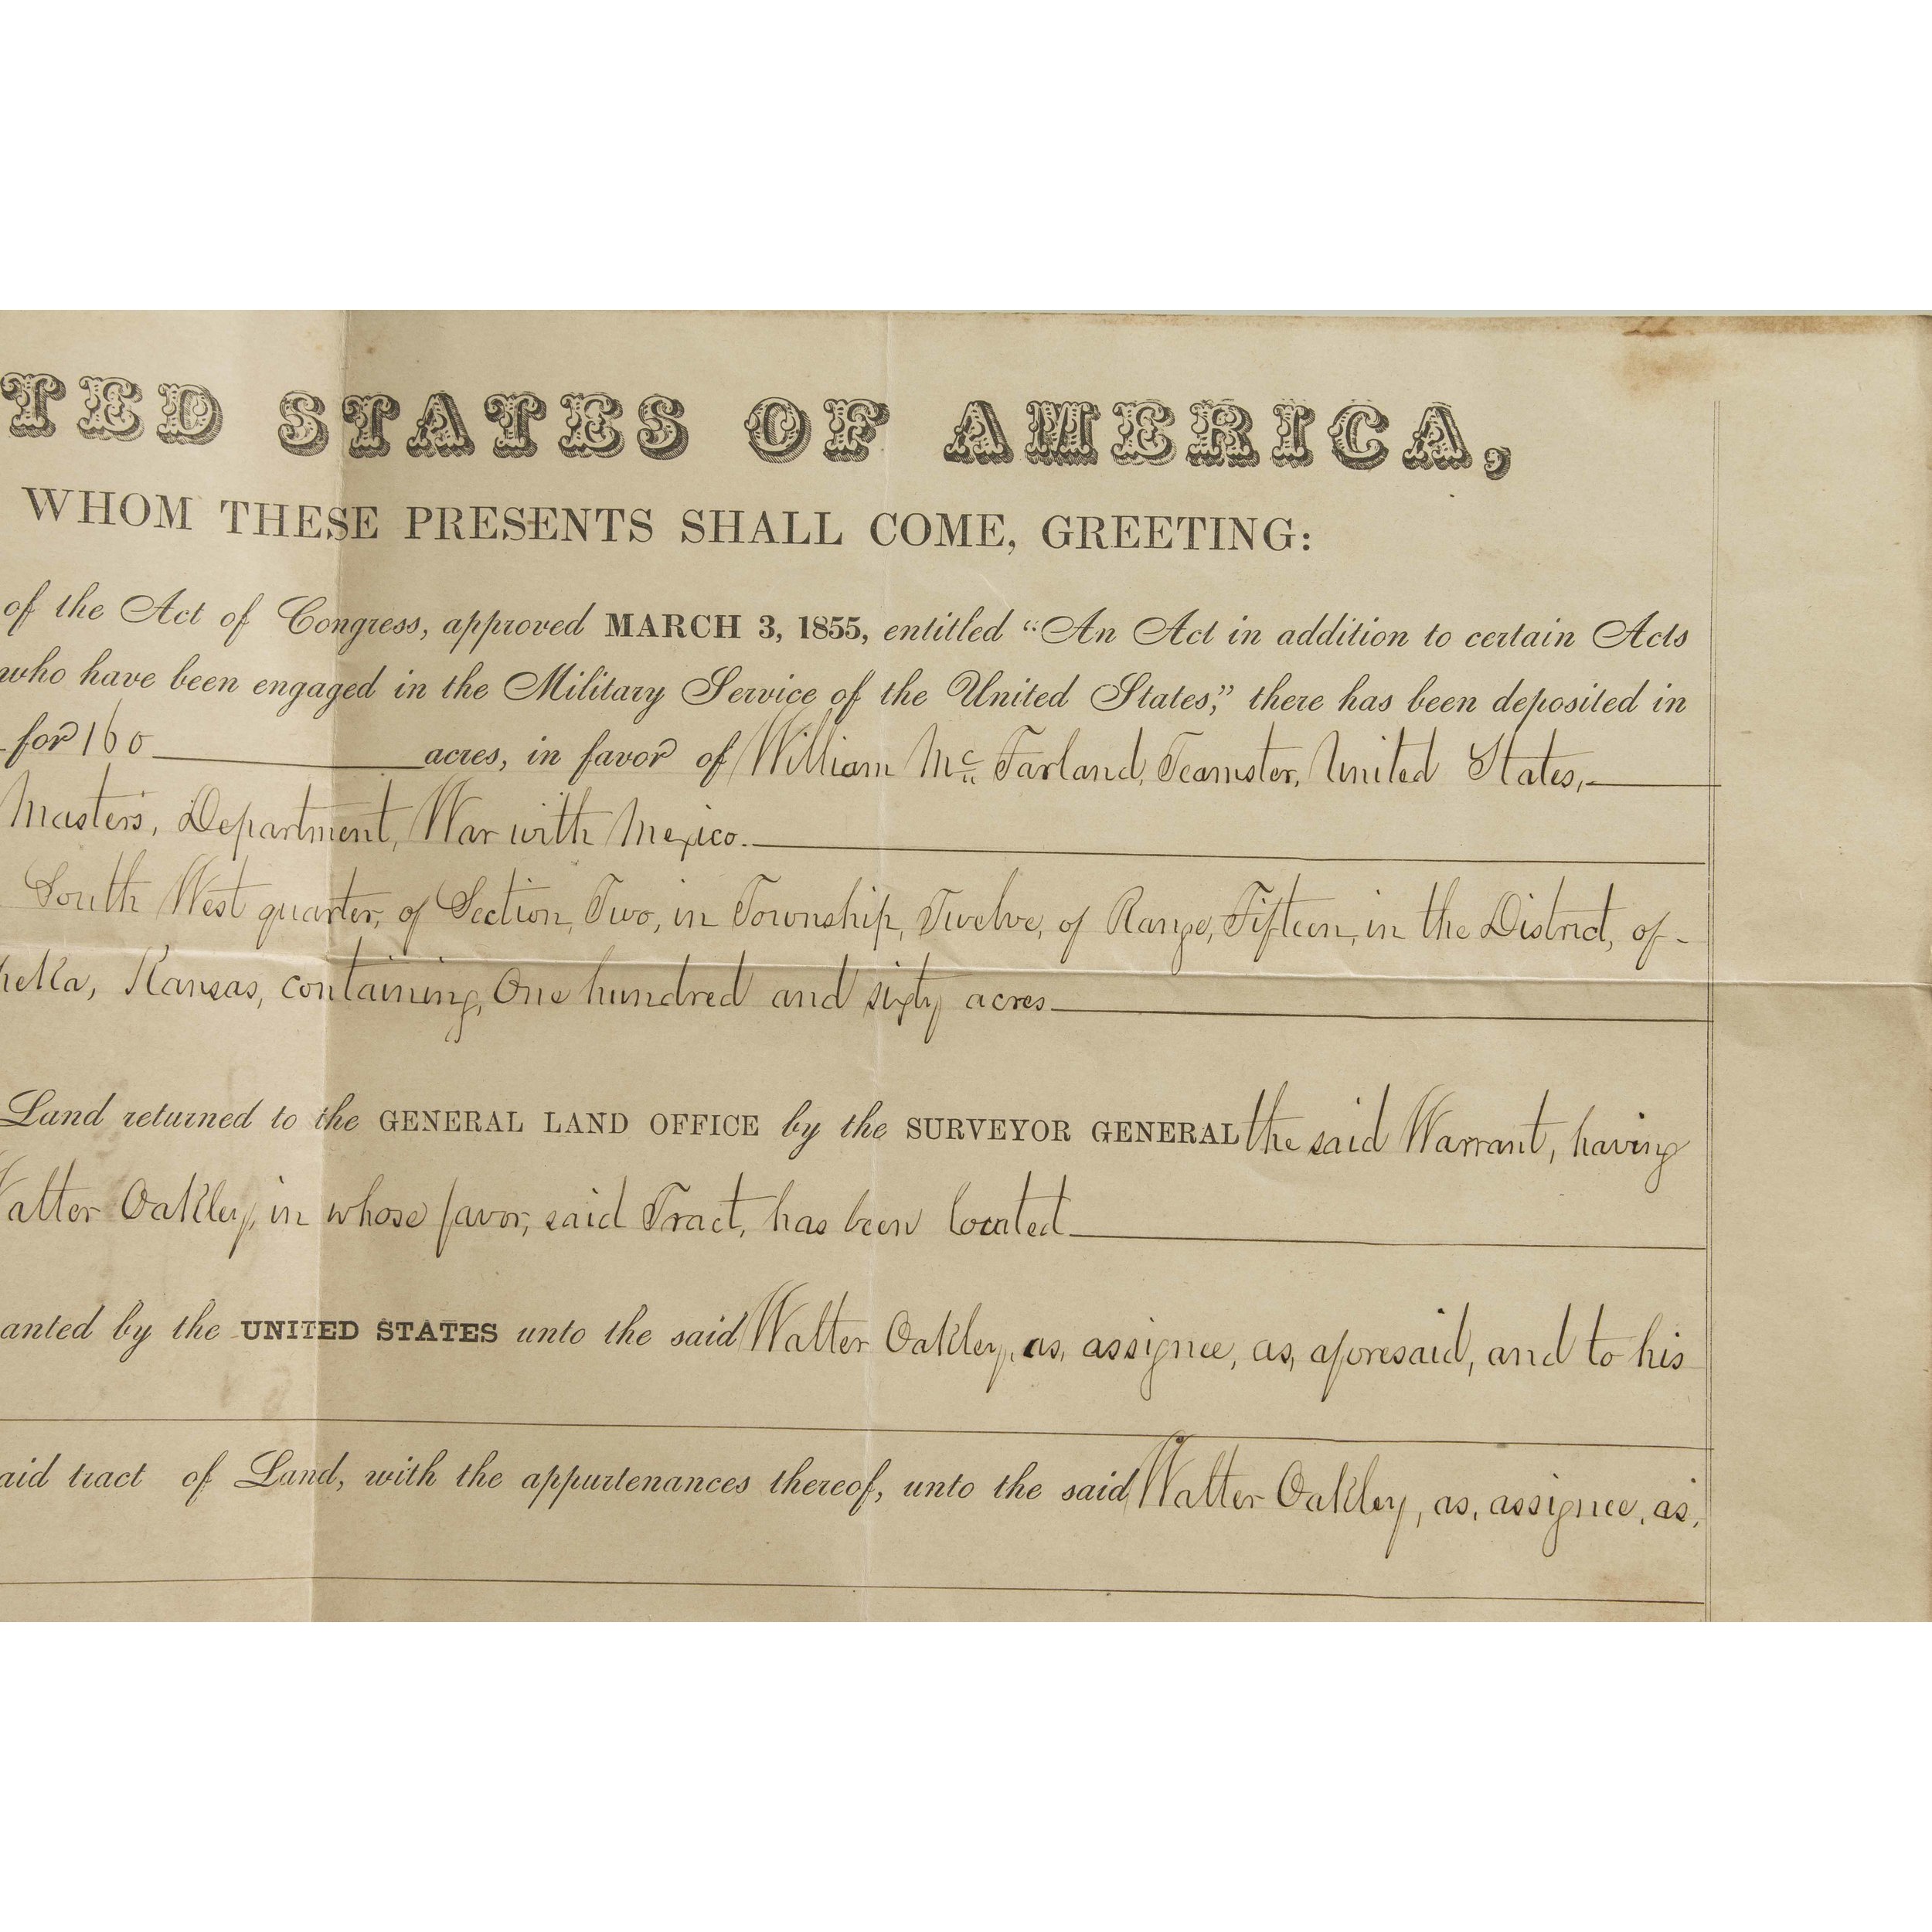 TED STATES OF AMERICA,
WHOM THESE PRESENTS SHALL COME, GREETING:
of the Act of Congress, approved MARCH 3, 1855, entitled "An Act in addition to certain Acts
who have been engaged in the Military Service of the United States," there has been deposited in
for 160 acres, in favor of William Mc Farland, Teamster, United States,
Masters, Department, War with Mexico.
South West quarter, of Section, Two, in Township, Twelve, of Range, Fifteen, in the District, of-
peka, Kansas, containing, One hundred and sixty acres
Land returned to the GENERAL LAND OFFICE by the SURVEYOR GENERAL the said Warrant, having
Walter Oakley, in whose favor, said Tract, has been located
anted by the UNITED STATES unto the said Walter Oakley, as, assignee, as, aforesaid, and to his
aid tract of Land, with the appurtenances thereof, unto the said Walter Oakley, as, assignee, as,